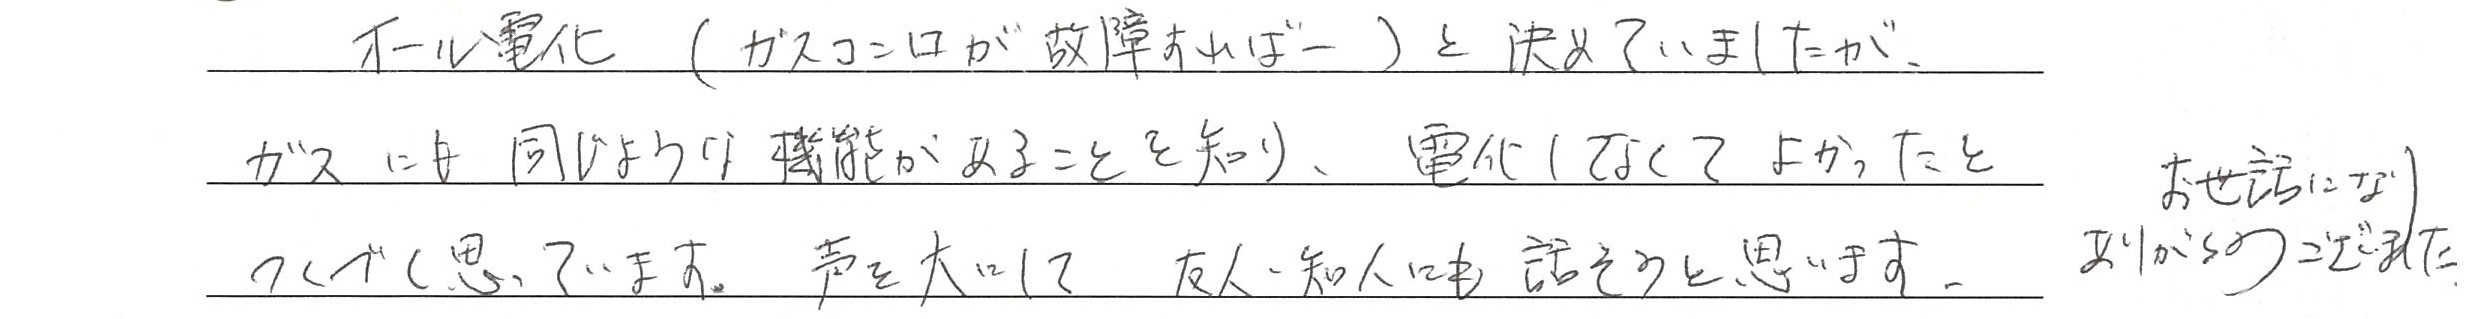 オール電化 (ガスコンロが故障すればー) と決めていましたが、
ガスにも同じような機能があることを知り、電化しなくてよかったと
つくづく思っています。声を大にして 友人・知人にも話そうと思います。
お世話になり
ありがとうございました